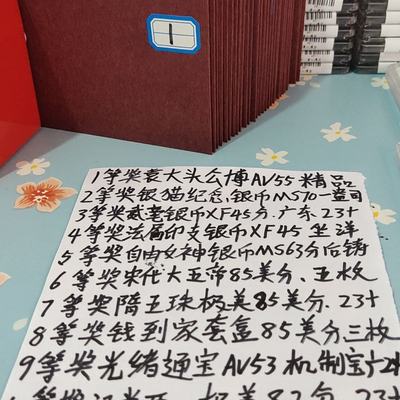 1
1等奖袁大头公博AV55精品
2等奖银猫纪念银币MS70一盎司
3等奖贰毫银币XF45分.广东23十
4等奖法属印支银币XF45坐洋
5等奖自由女神银币MS63分后铸
6等奖宋代大五帝85美分、五枚
7等奖隋五珠极美85美分.23十
8等奖钱到家套盒85美分三枚
9等奖光绪通宝AV53机制宝广